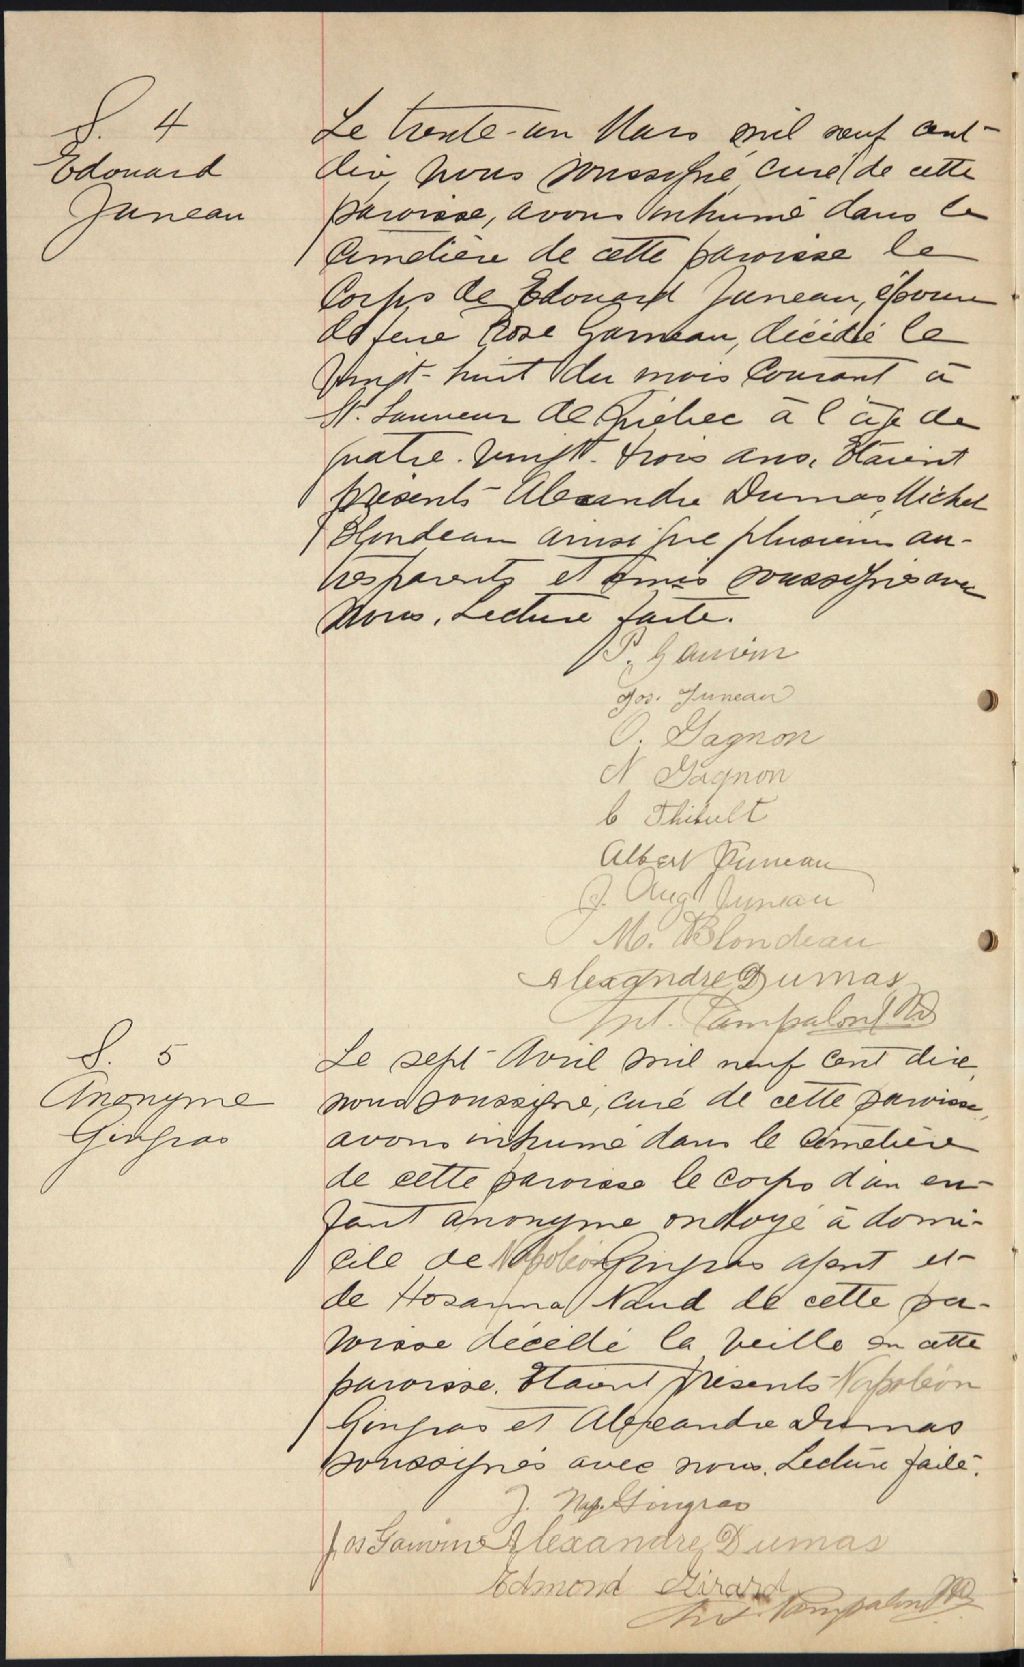 S. 4
Edouard
Juneau
Le trente-un Mars mil neuf cent
dix, nous soussigné, curé de cette
paroisse, avons inhumé dans le
cimetière de cette paroisse le
corps de Edouard Juneau, époux
de feue Rose Garneau, décédé le
vingt-huit du mois courant à
St. Sauveur de Québec à l'âge de
quatre-vingt-trois ans. Etaient
présents Alexandre Dumas, Michel
Blondeau ainsi que plusieurs au-
tres parents et amis soussignés avec
nous. Lecture faite.
P. Gauvin
Jos. Juneau
O. Gagnon
N Gagnon
C Thibult
Albert Juneau
J. Aug Juneau
M. Blondeau
Alexandre Dumas
Ant. Pampalon Ptre
S. 5
Anonyme
Gingras
Le sept Avril mil neuf cent dix,
nous soussigné, curé de cette paroisse,
avons inhumé dans le cimetière
de cette paroisse le corps d'un en-
fant anonyme ondoyé à domi-
cile de Napoléon Gingras agent et
de Hosanna Naud de cette pa-
roisse décédé la veille en cette
paroisse. Etaient présents Napoléon
Gingras et Alexandre Dumas
soussignés avec nous. Lecture faite.
J. Nap. Gingras
Jos Gauvin Alexandre Dumas
Edmond Girard
Ant. Pampalon Ptre